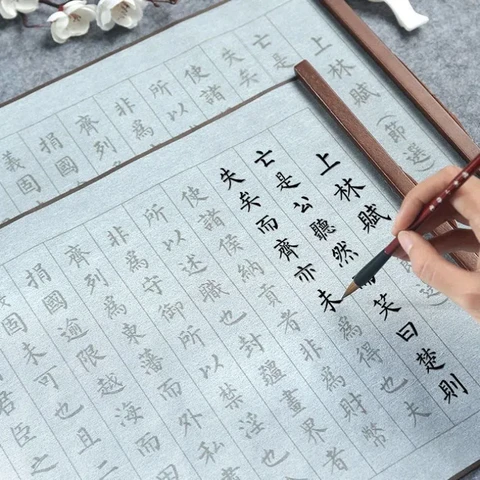 上林賦(節選
亡是
失矣
使諸
所以
非為
齊列
捐國
義固
上林賦選
亡是公聽然笑曰楚則
失矣而齊亦未為得也夫
使諸侯納貢者非為財幣
所以述職也封疆畫界者
非為守御所以禁淫也
齊列為東藩而外私
捐國逾限越海而
固未可也且二
君臣之